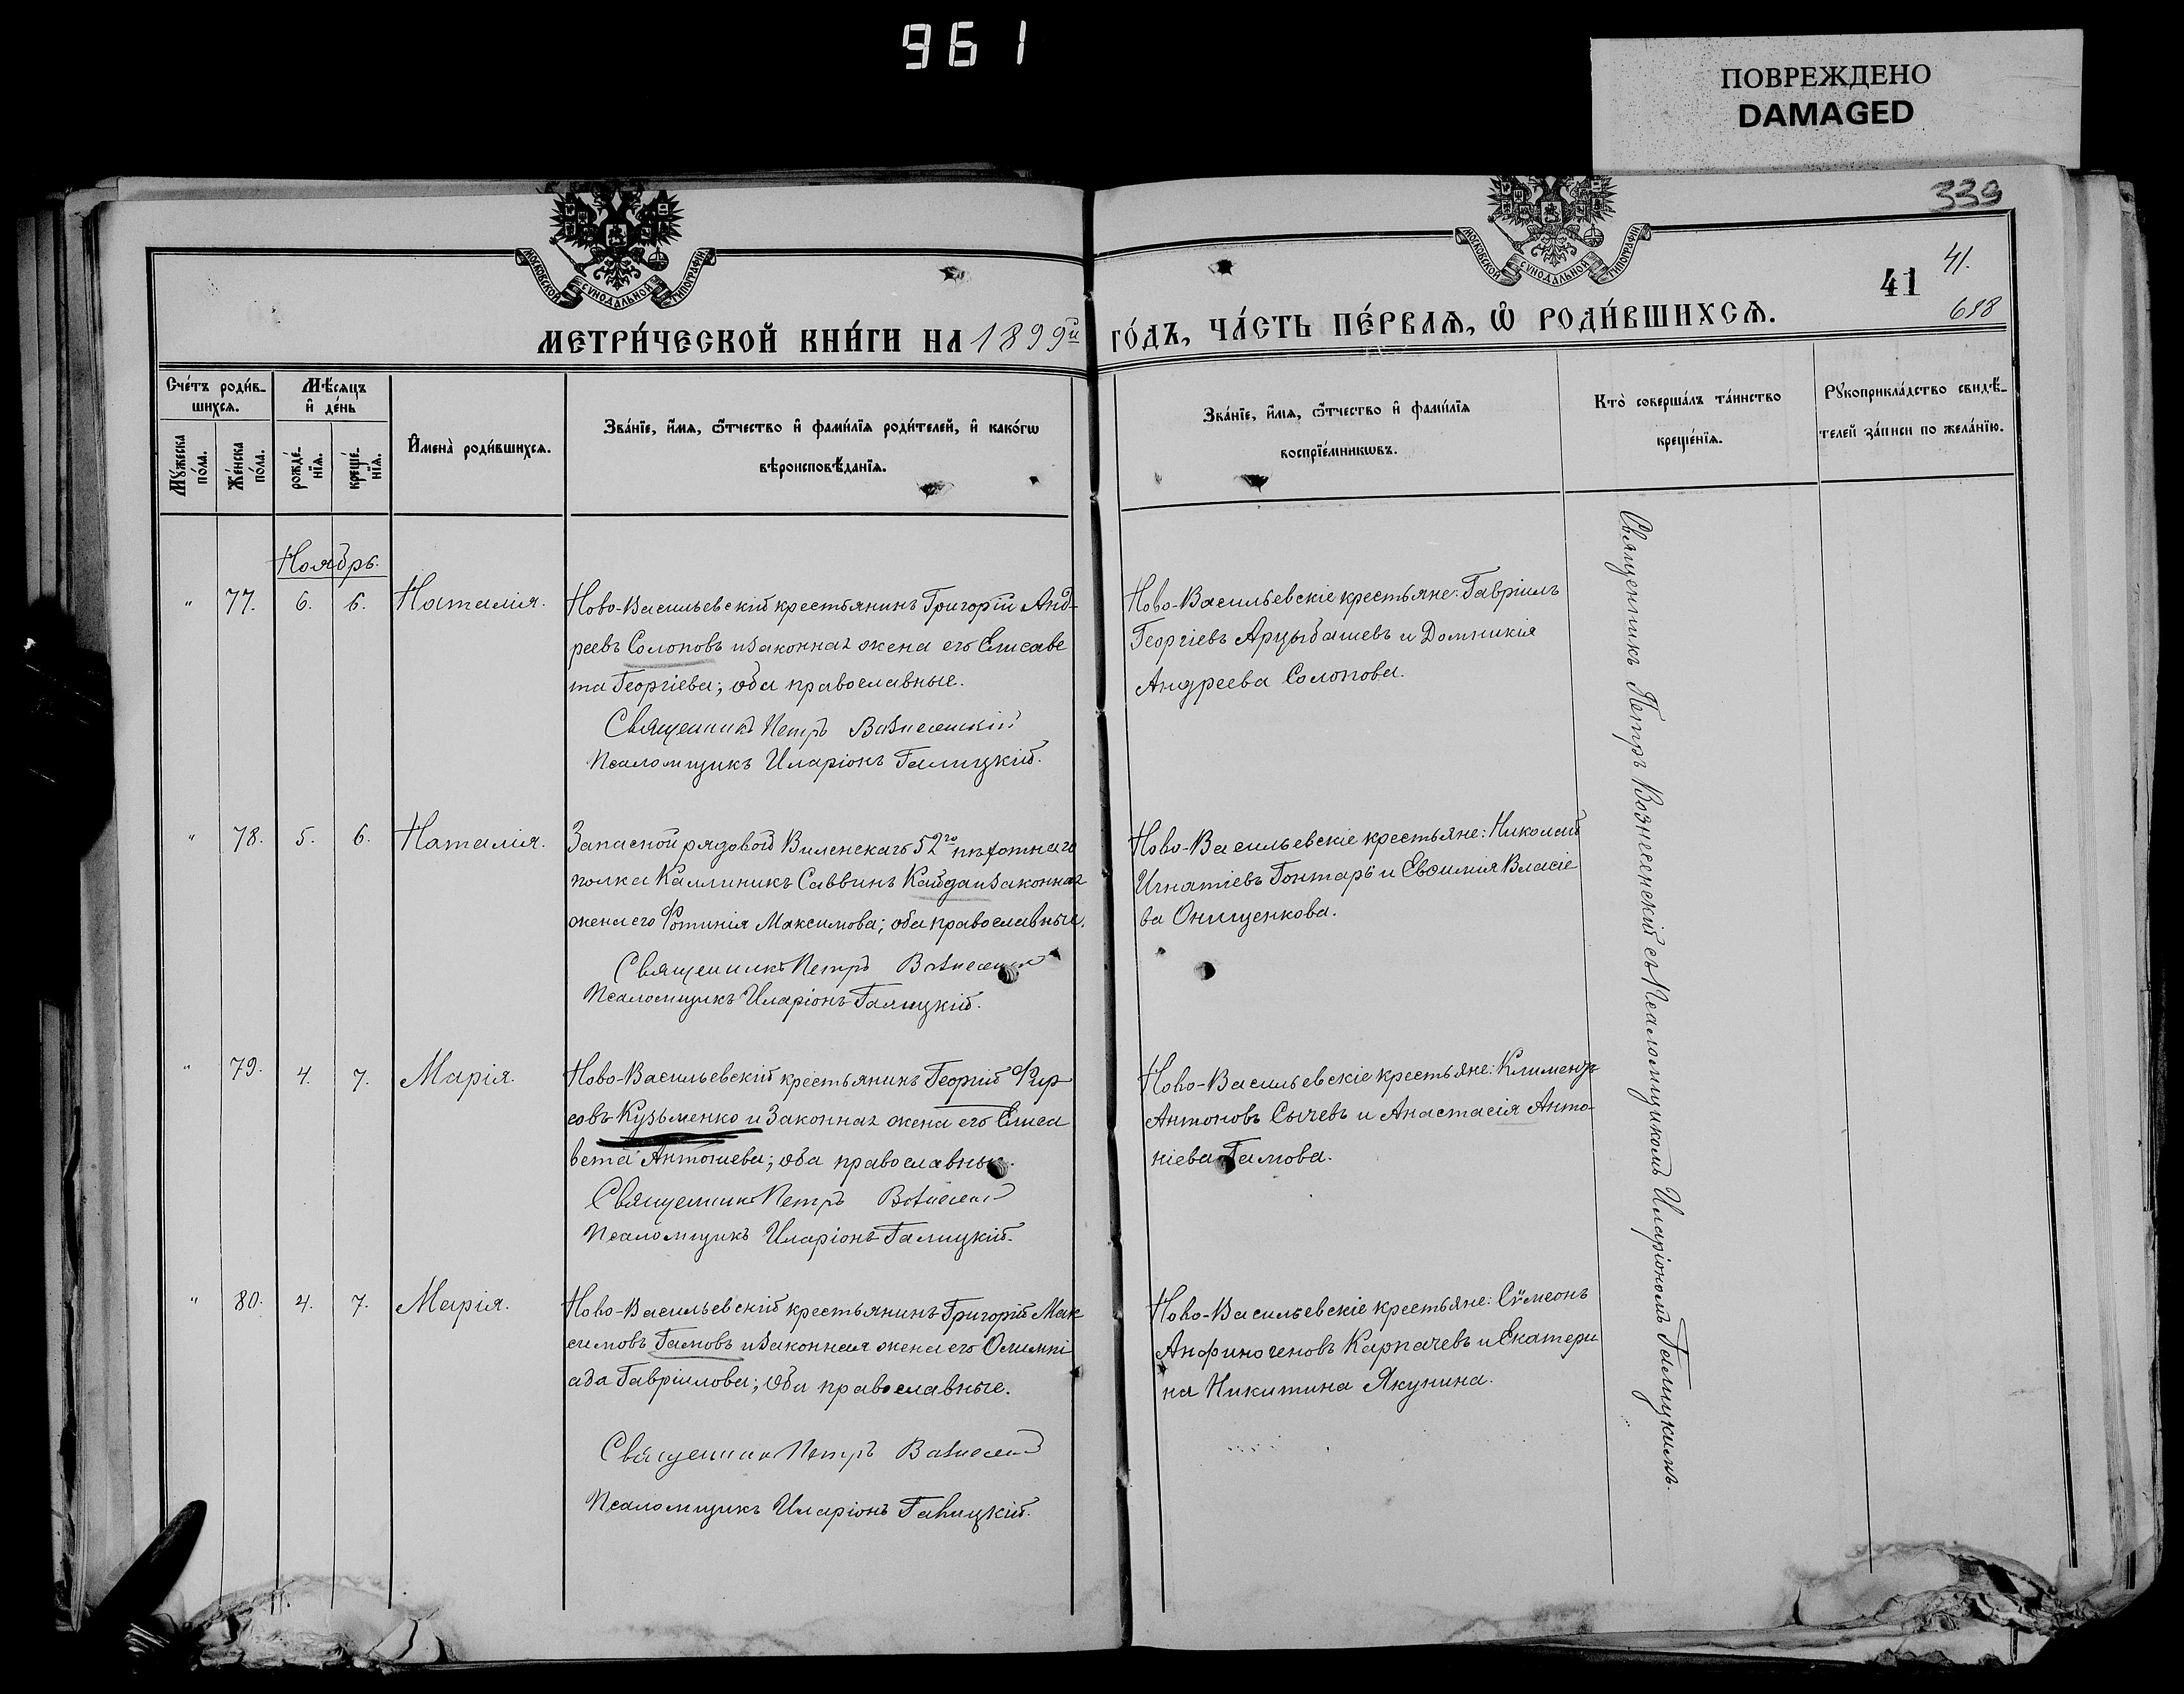 961
ПОВРЕЖДЕНО
DAMAGED
339
МОСКОВСКОЙ СУНОДАЛЬНОЙ ТИПОГРАФІИ
МОСКОВСКОЙ СУНОДАЛЬНОЙ ТИПОГРАФІИ
41
41.
698
МЕТРИ́ЧЕСКОЙ КНИ́ГИ НА 1899й ГО́ДЪ, ЧА́СТЬ ПЕ́РВАѦ, Ѡ҆ РОДИ́ВШИХСѦ.
Сче́тъ роди́в-
шихсѧ.
Мѣ́сяцъ
и҆ де́нь
Мꙋ́жеска
по́ла.
Же́нска
по́ла.
рожде́-
нїѧ.
креще́-
нїѧ.
И҆мена̀ роди́вшихсѧ.
Зва́нїе, и҆́мѧ, ѻ҆́тчество и҆ фами́лїѧ роди́телей, и҆ како́гѡ
вѣроисповѣ́данїѧ.
Зва́нїе, и҆́мѧ, ѻ҆́тчество и҆ фами́лїѧ
воспрїе́мникѡвъ.
Кто̀ соверша́лъ та́инство
креще́нїѧ.
Рꙋкоприкла́дство свидѣ́-
телей за́писи по жела́нїю.
Ноябрь.
" 77. 6. 6. Наталія.
Ново-Васильевскій крестьянинъ Григорій Анд-
реевъ Солоповъ и законная жена его Елисаве
та Георгіева; оба православные.
Священникъ Петръ Вознесенскій
Псаломщикъ Иларіонъ Галицкій.
Ново-Васильевскіе крестьяне: Гавріилъ
Георгіевъ Арцыбашевъ и Домникія
Андреева Солопова.
" 78. 5. 6. Наталія.
Запасной рядовой Виленскаго 52го пѣхотнаго
полка Каллиникъ Саввинъ Кайда и законная
жена его Фотинія Максимова; оба православные.
Священникъ Петръ Вознесенск
Псаломщикъ Иларіонъ Галицкій.
Ново-Васильевскіе крестьяне: Николай
Игнатіевъ Гонтарь и Евѳимія Власіе
ва Онищенкова.
" 79. 4. 7. Марія.
Ново-Васильевскій крестьянинъ Георгій Фир
совъ Кузьменко и законная жена его Елиса
вета Антоніева; оба православные.
Священникъ Петръ Вознесенск
Псаломщикъ Иларіонъ Галицкій.
Ново-Васильевскіе крестьяне: Климентъ
Антоновъ Сычевъ и Анастасія Анто-
ніева Гамова.
" 80. 4. 7. Марія.
Ново-Васильевскій крестьянинъ Григорій Мак
симовъ Гамовъ и законная жена его Олимпі
ада Гавріилова; оба православные.
Священник Петръ Вознесен
Псаломщикъ Иларіонъ Галицкій.
Ново-Васильевскіе крестьяне: Сѵмеонъ
Анфиногеновъ Карпачевъ и Екатери
на Никитина Якунина.
Священникъ Петръ Вознесенскій съ Псаломщикомъ Иларіономъ Галицкимъ.